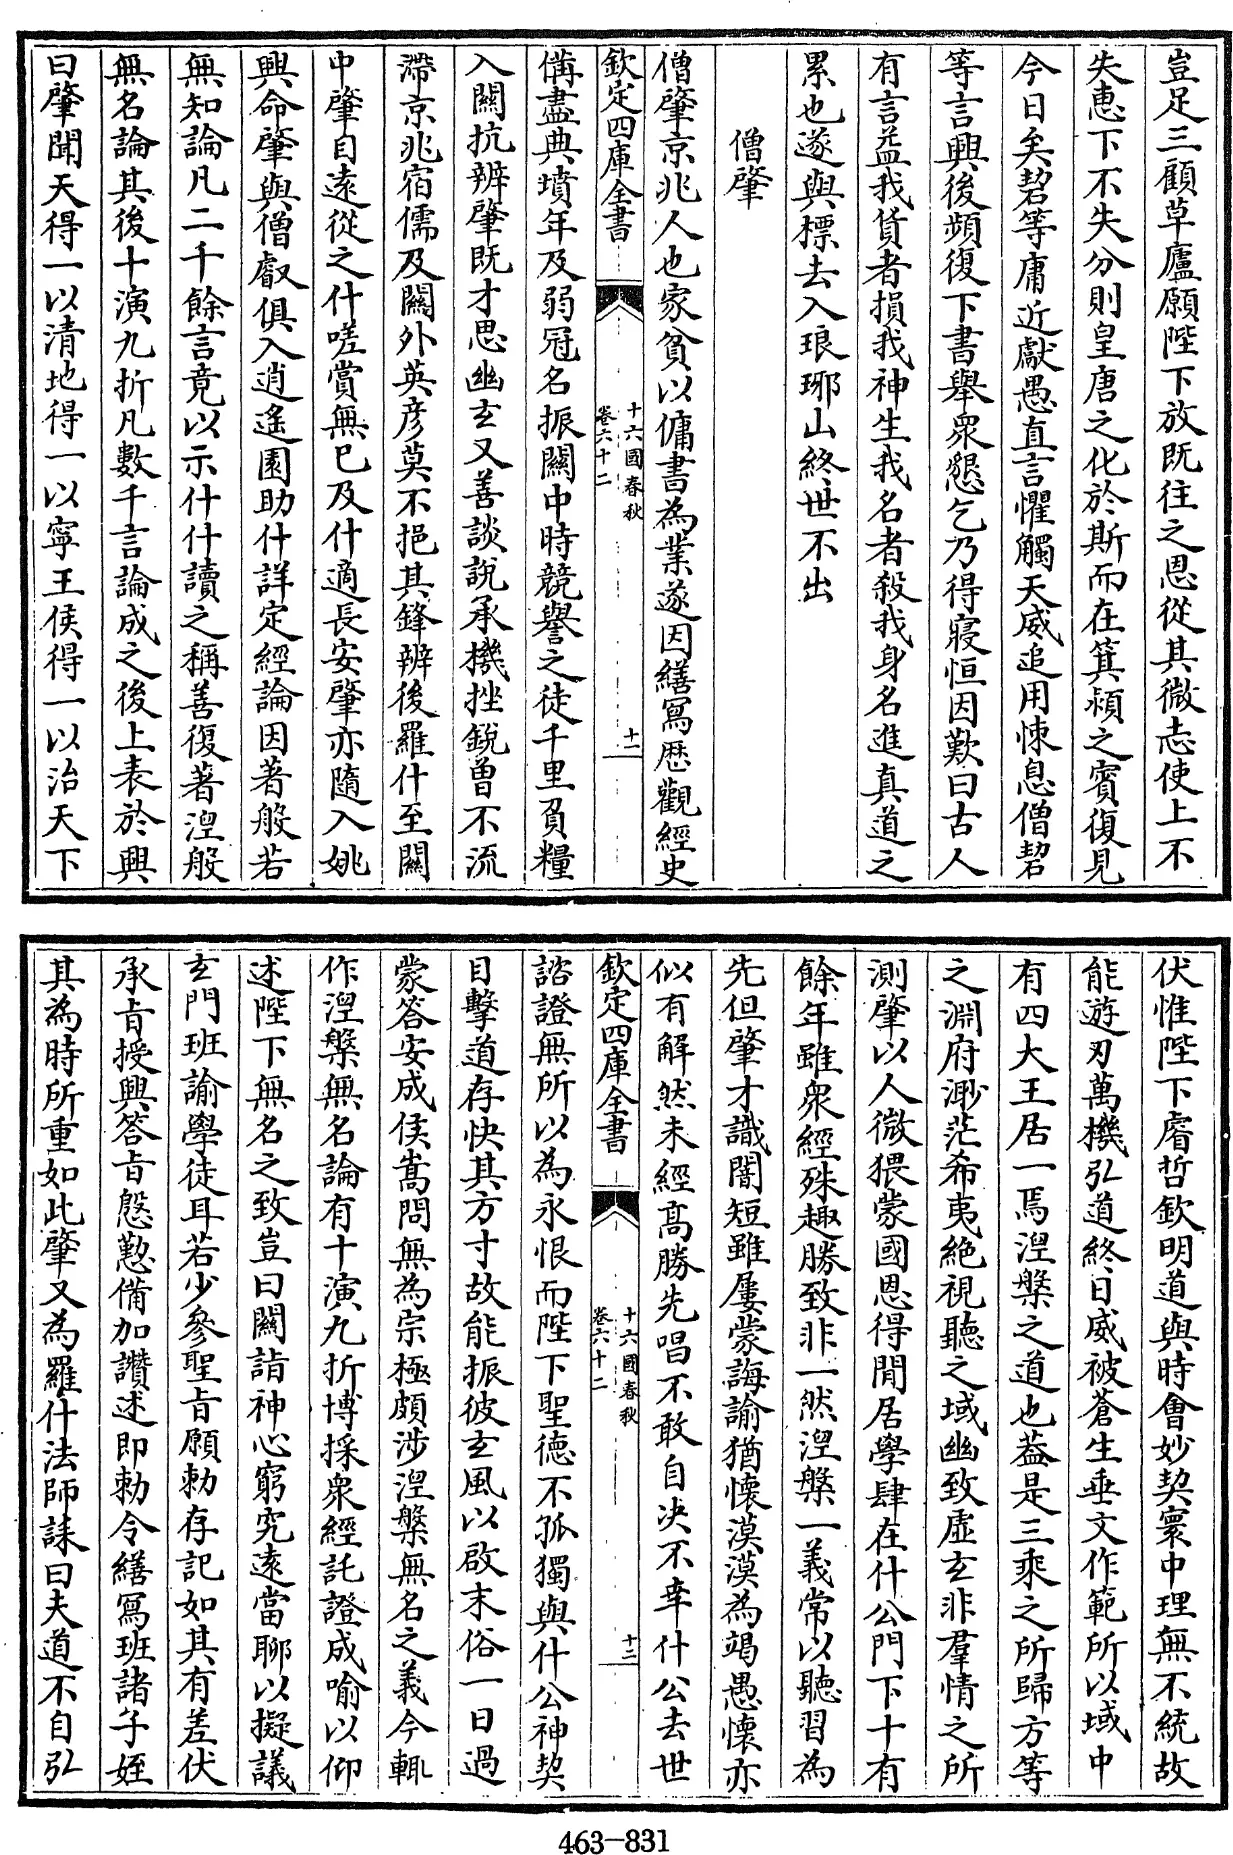 豈足三顧草廬願陛下放既往之恩從其微志使上不
失惠下不失分則皇唐之化於斯而在箕潁之賓復見
今日矣䂮等庸近獻愚直言懼觸天威追用悚息僧䂮
等言興後頻復下書舉衆懇乞乃得寢恒因歎曰古人
有言益我貨者損我神生我名者殺我身名進真道之
累也遂與標去入琅琊山終世不出
僧肇
僧肇京兆人也家貧以傭書為業遂因繕寫歴觀經史
欽定四庫全書
十六國春秋
卷六十二
十二
備盡典墳年及弱冠名振關中時競譽之徒千里負糧
入關抗辨肇既才思幽玄又善談説承機挫銳曽不流
滯京兆宿儒及關外英彦莫不挹其鋒辨後羅什至關
中肇自遠從之什嗟賞無已及什適長安肇亦隨入姚
興命肇與僧叡俱入逍遙園助什詳定經論因著般若
無知論凡二千餘言竟以示什什讀之稱善復著湼般
無名論其後十演九折凡數千言論成之後上表於興
曰肇聞天得一以清地得一以寧王侯得一以治天下
伏惟陛下睿哲欽明道與時會妙契寰中理無不統故
能遊刃萬機弘道終日威被蒼生垂文作範所以域中
有四大王居一焉湼槃之道也葢是三乘之所歸方等
之淵府渺茫希夷絶視聽之域幽致虛玄非羣情之所
測肇以人微猥蒙國恩得閒居學肆在什公門下十有
餘年雖衆經殊趣勝致非一然湼槃一義常以聽習為
先但肇才識闇短雖屢蒙誨諭猶懷漠漠為竭愚懷亦
似有解然未經高勝先唱不敢自决不幸什公去世
欽定四庫全書
十六國春秋
卷六十二
十三
諮證無所以為永恨而陛下聖德不孤獨與什公神契
目擊道存快其方寸故能振彼玄風以啟末俗一日過
蒙答安成侯嵩問無為宗極頗涉湼槃無名之義今輒
作湼槃無名論有十演九折博採衆經託證成喻以仰
述陛下無名之致豈曰關詣神心窮究遠當聊以擬議
玄門班諭學徒耳若少參聖㫖願勑存記如其有差伏
承㫖授興答㫖慇懃備加讚述即勑令繕寫班諸子姪
其為時所重如此肇又為羅什法師誄曰夫道不自弘
463-831